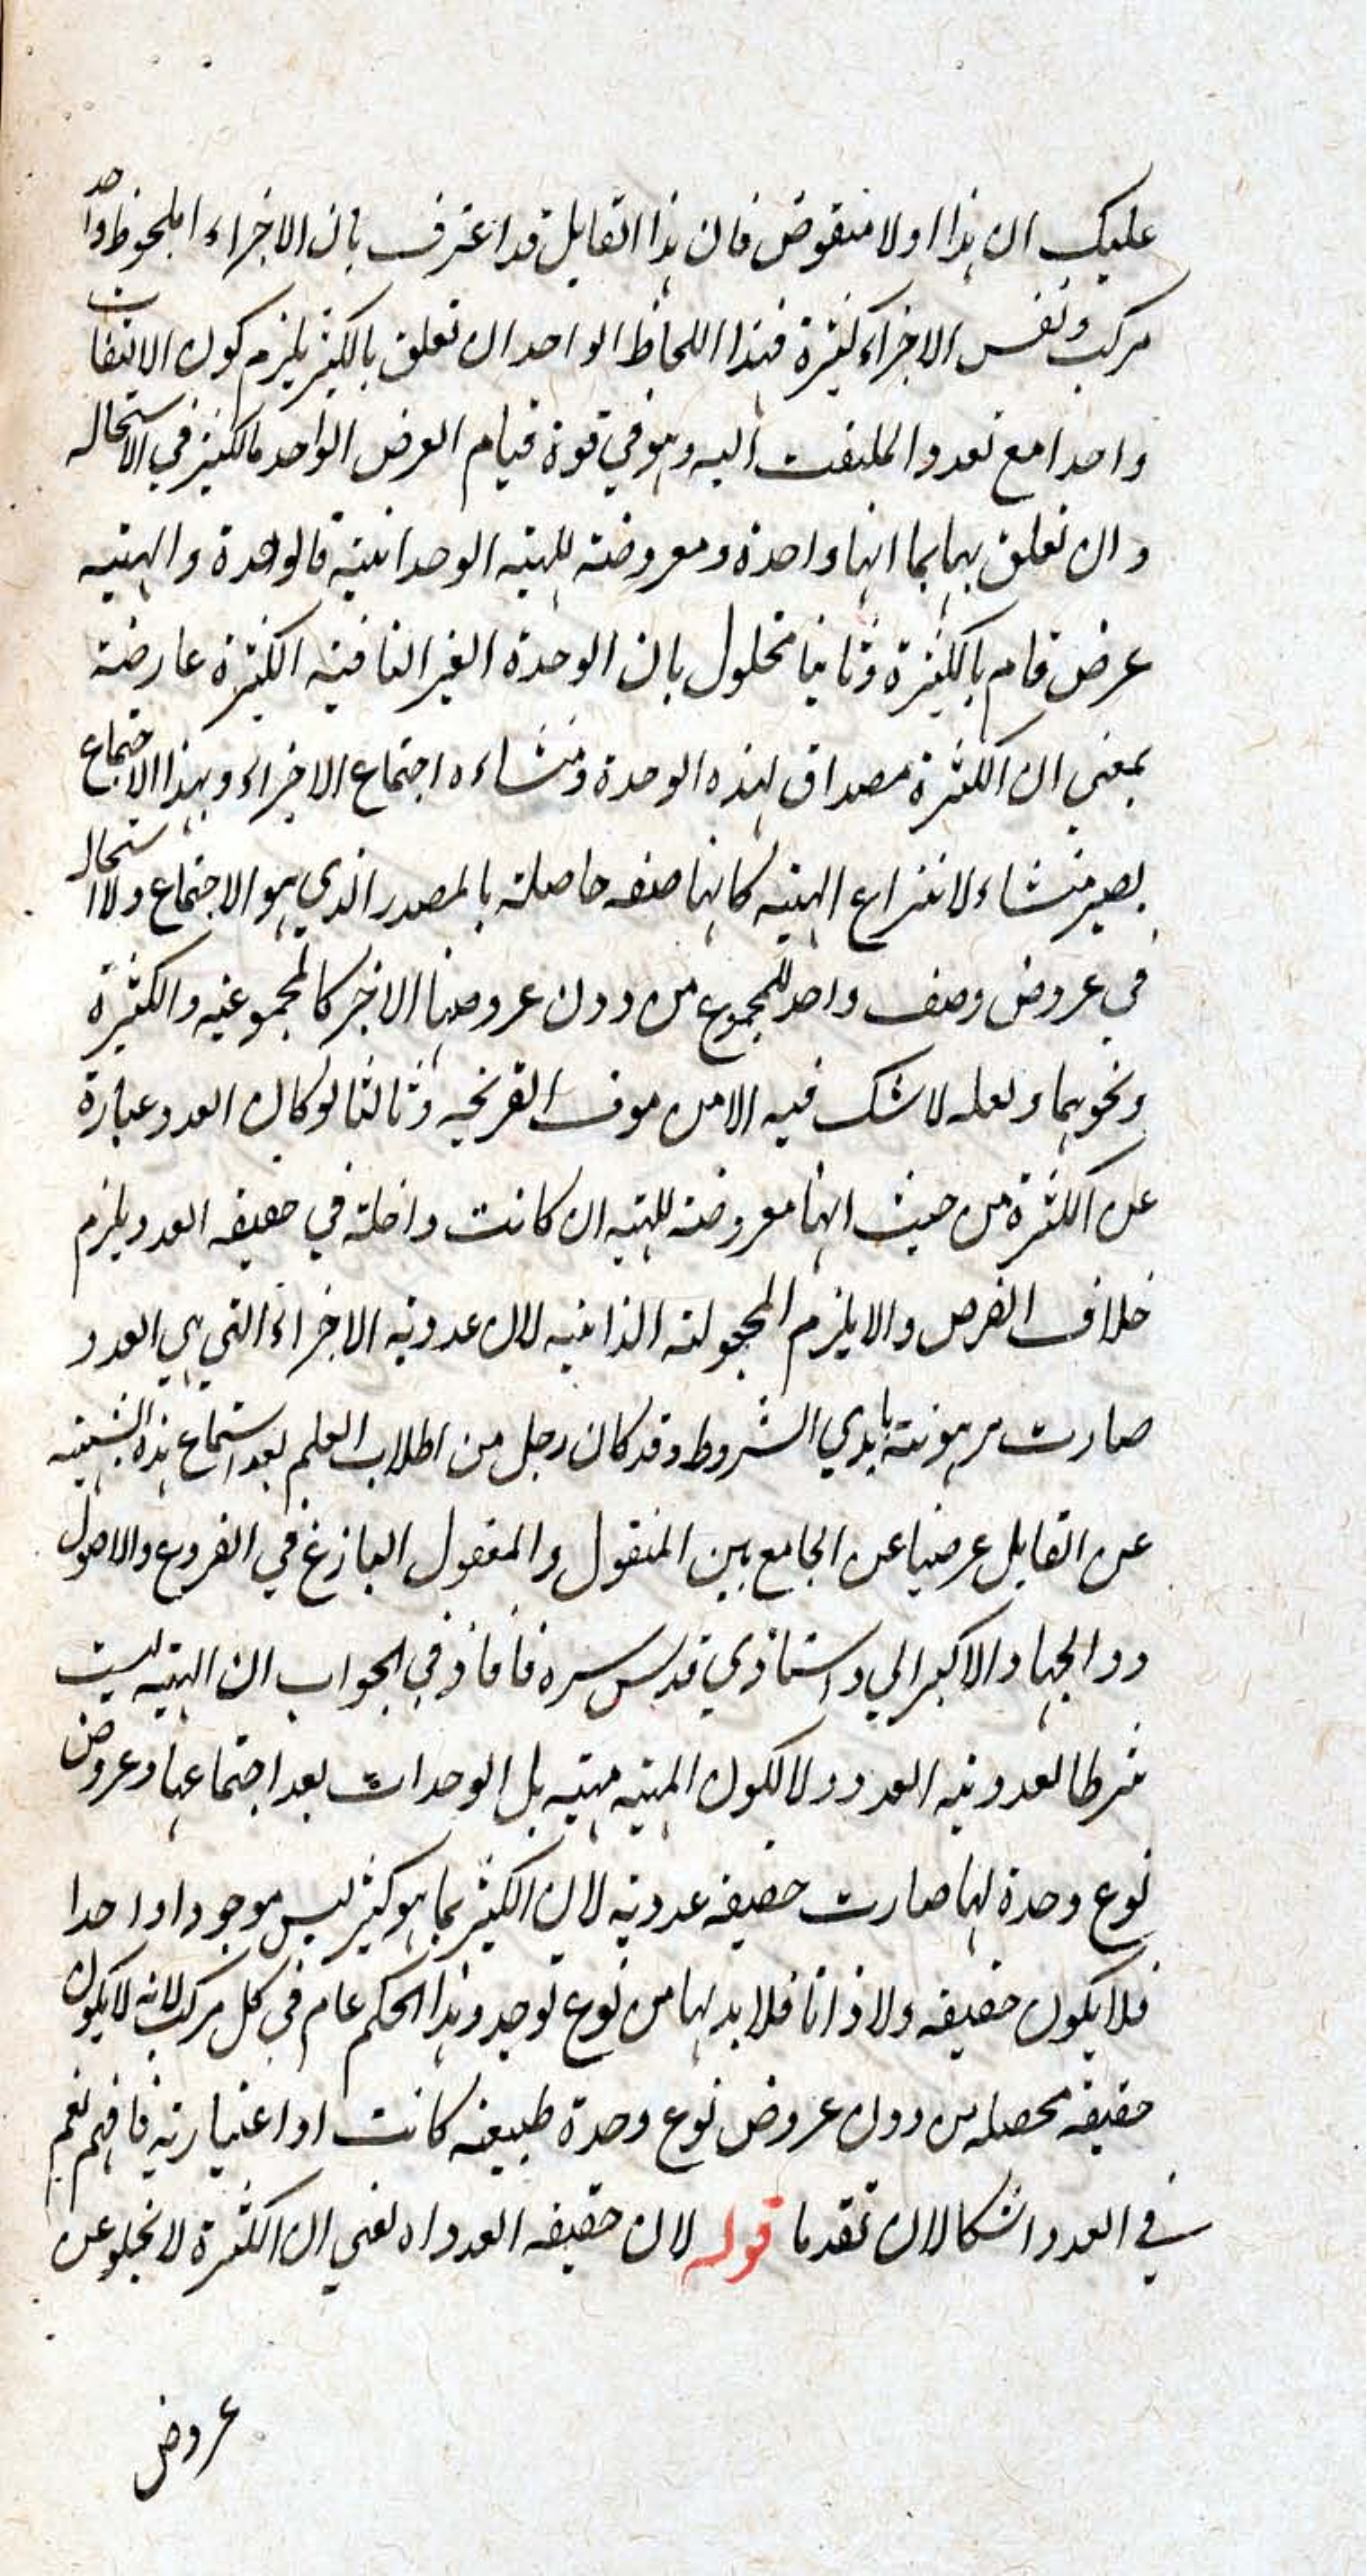 عليك ان هذا اولا منقوض فان هذا القايل قد اعترف بان الاجزاء الملحوظ واحد
مركب ونفس الاجزاء كثيرة فهذا اللحاظ الواحد ان تعلق بالكثير يلزم كون الالتفات
واحدا مع تعدد الملتفت اليه وهو في قوة قيام العرض الواحد بالكثير في الاستحاله
وان تعلق بها بما انها واحدة ومعروضة للهيئه الوحدانية فالوحدة والهيئيه
عرض قام بالكثيرة وثانيا محلول بان الوحدة الغير النافيه الكثرة عارضة
بمعني ان الكثرة مصداق لهذه الوحدة ومنشاءه اجتماع الاجزاء وبهذا الاجتماع
يصير منشاء لانتزاع الهيئيه كانها صفه حاصلة بالمصدر الذي هو الاجتماع ولا استحاله
في عروض وصف واحد للمجموع من دون عروضها الاجزاء كالمجموعيه والكثرة
ونحوهما ولعله لا شك فيه الا من موف القريحيه وثالثا لو كان العدد عبارة
عن الكثرة من حيث انها معروضة للهيئه ان كانت داخلة في حقيقه العدد يلزم
خلاف الفرض والا يلزم المجعولية الذاتيه لان عددية الاجزاء التي هي العدد
صارت مرهونة بايدي الشروط وقد كان رجل من اطلاب العلم بعد استماع هذه الشبهيه
عن القايل عرضها عن الجامع بين المنقول والمعقول البازغ في الفروع والاصول
ذو الجهاد الاكبر ابي واستاذي قدس سره فافاد في الجواب ان الهيئيه ليست
شرطا لعدديه العدد ولا لكون المهيه مهيه بل الوحدات بعد اجتماعها وعروض
نوع وحدة لها صارت حقيقه عدديه لان الكثير بما هو كثير ليس موجودا واحدا
فلا يكون حقيقه ولا ذاتا فلا بد لها من نوع توحد وهذا الحكم عام في كل مركب لانه لا يكون
حقيقه محصله من دون عروض نوع وحدة طبيعه كانت او اعتباريه فافهم نعم
في العدد اشكالان تقدما قوله لان حقيقه العدد اه يعني ان الكثرة لا تخلو عن
عروض